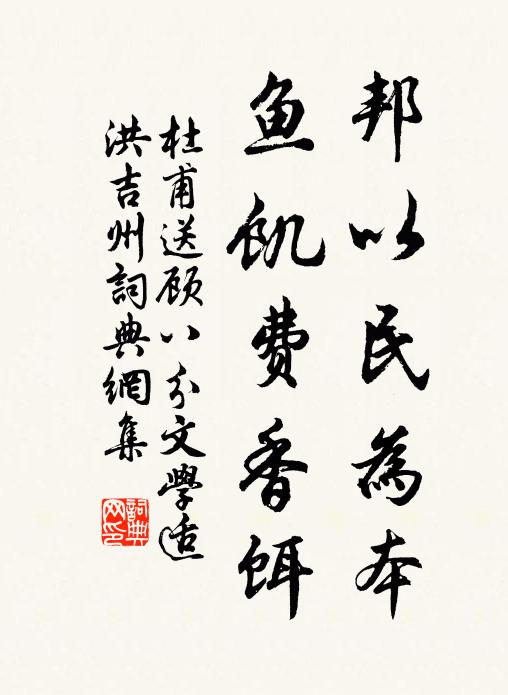 邦以民為本
鱼飢費香餌
杜甫送顾八分文學适
洪吉州詞典網集
詞典
网印